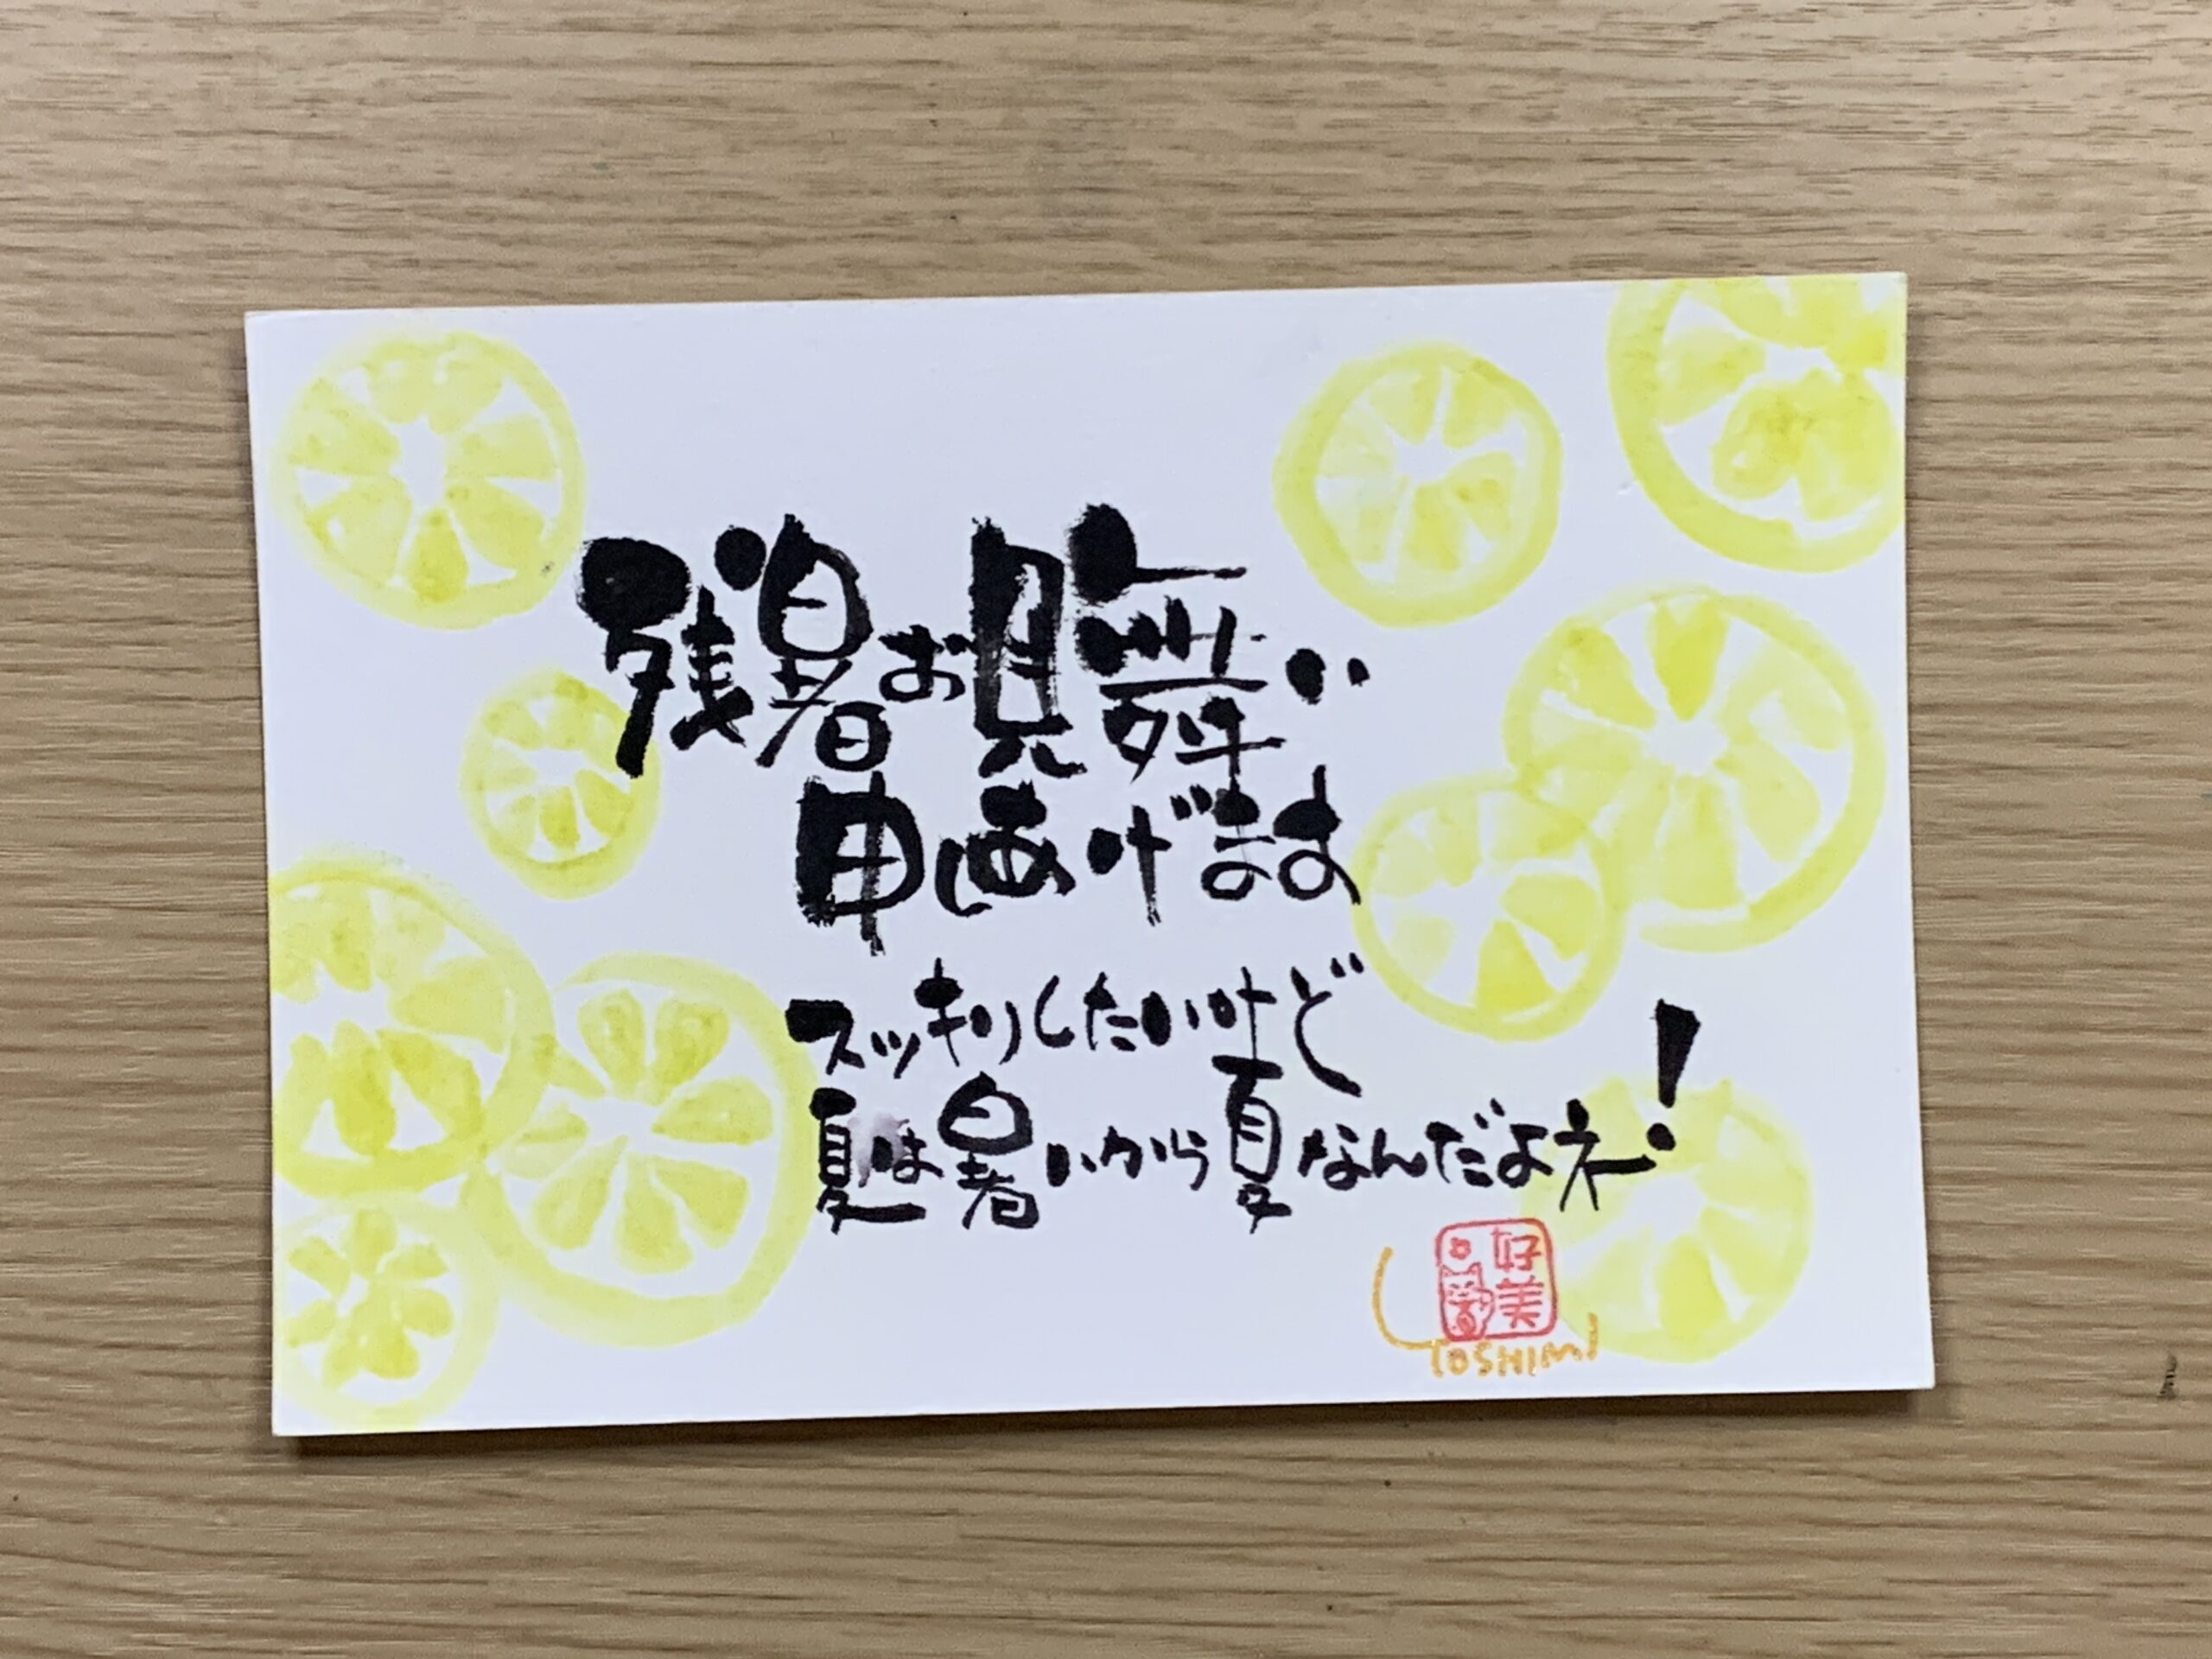 残暑お見舞い
申しあげます
スッキリしたいけど
夏は暑いから夏なんだよネ!
好美
YOSHIMI